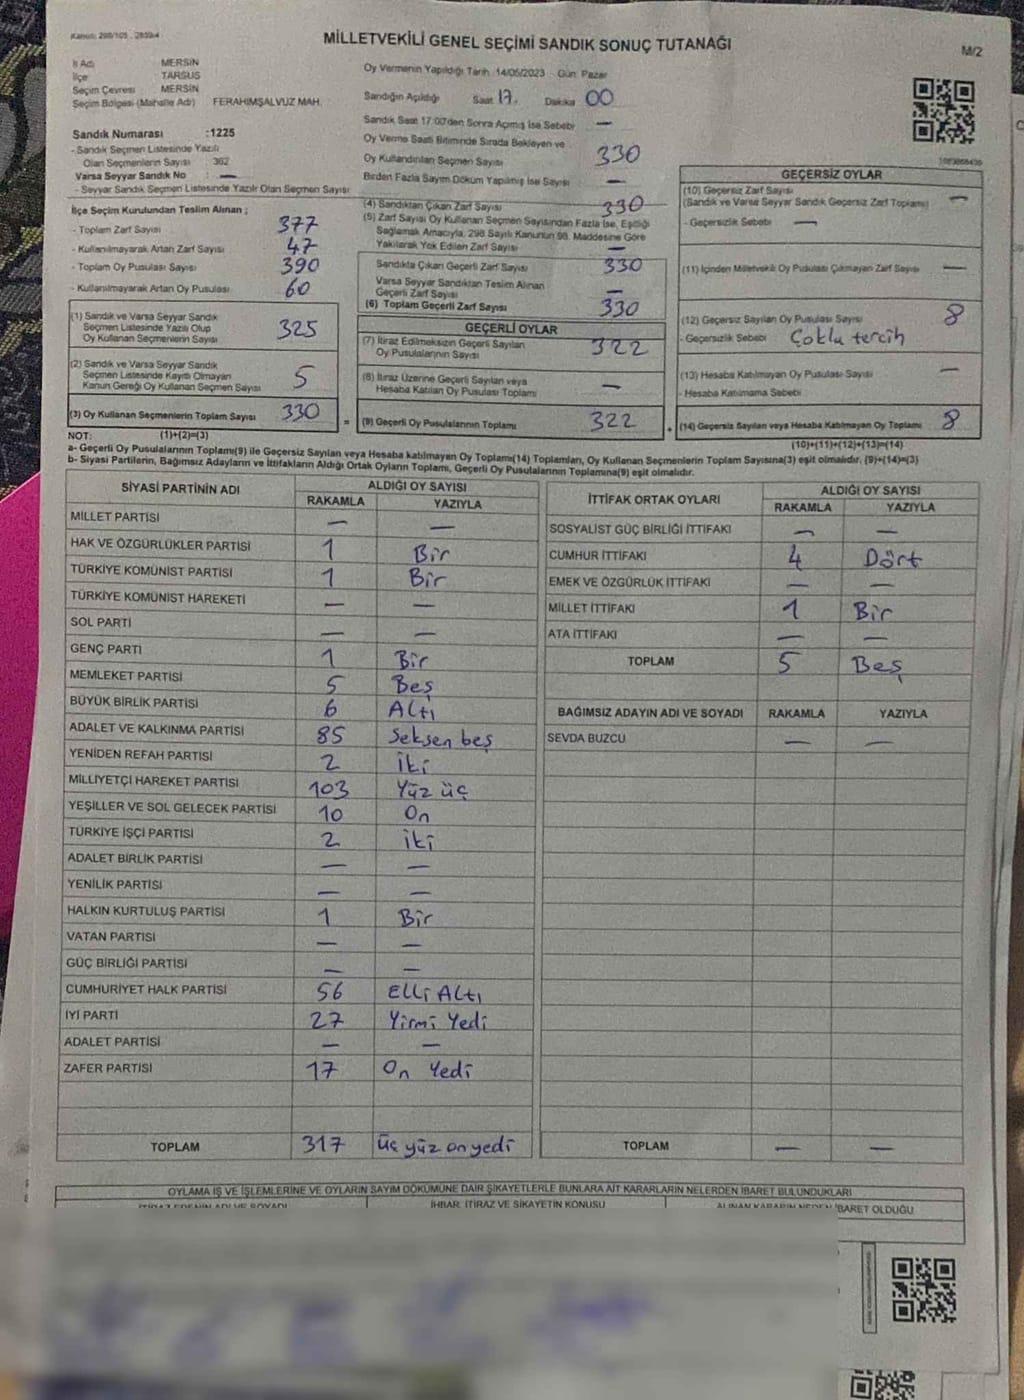 Kanun: 298/105 , 2839/4
MİLLETVEKİLİ GENEL SEÇİMİ SANDIK SONUÇ TUTANAĞI
M/2
İl Adı MERSİN
İlçe TARSUS
Seçim Çevresi MERSİN
Seçim Bölgesi (Mahalle Adı) FERAHİMŞALVUZ MAH.
Sandık Numarası :1225
- Sandık Seçmen Listesinde Yazılı
Olan Seçmenlerin Sayısı 362
Varsa Seyyar Sandık No : —
- Seyyar Sandık Seçmen Listesinde Yazılı Olan Seçmen Sayısı
Oy Vermenin Yapıldığı Tarih :14/05/2023 Gün: Pazar
Sandığın Açıldığı Saat 17. Dakika 00
Sandık Saat 17:00'den Sonra Açılmış İse Sebebi —
Oy Verme Saati Bitiminde Sırada Bekleyen ve
Oy Kullandırılan Seçmen Sayısı 330
Birden Fazla Sayım Döküm Yapılmış İse Sayısı —
İlçe Seçim Kurulundan Teslim Alınan ;
- Toplam Zarf Sayısı 377
- Kullanılmayarak Artan Zarf Sayısı 47
- Toplam Oy Pusulası Sayısı 390
- Kullanılmayarak Artan Oy Pusulası 60
(1) Sandık ve Varsa Seyyar Sandık
Seçmen Listesinde Yazılı Olup
Oy Kullanan Seçmenlerin Sayısı 325
(2) Sandık ve Varsa Seyyar Sandık
Seçmen Listesinde Kayıtlı Olmayan
Kanun Gereği Oy Kullanan Seçmen Sayısı 5
(3) Oy Kullanan Seçmenlerin Toplam Sayısı 330
(4) Sandıktan Çıkan Zarf Sayısı 330
(5) Zarf Sayısı Oy Kullanan Seçmen Sayısından Fazla İse, Eşitliği
Sağlamak Amacıyla, 298 Sayılı Kanunun 98. Maddesine Göre
Yakılarak Yok Edilen Zarf Sayısı —
Sandıkta Çıkan Geçerli Zarf Sayısı 330
Varsa Seyyar Sandıktan Teslim Alınan
Geçerli Zarf Sayısı —
(6) Toplam Geçerli Zarf Sayısı 330
GEÇERLİ OYLAR
(7) İtiraz Edilmeksizin Geçerli Sayılan
Oy Pusulalarının Sayısı 322
(8) İtiraz Üzerine Geçerli Sayılan veya
Hesaba Katılan Oy Pusulası Toplamı —
= (9) Geçerli Oy Pusulalarının Toplamı 322
GEÇERSİZ OYLAR
(10) Geçersiz Zarf Sayısı
(Sandık ve Varsa Seyyar Sandık Geçersiz Zarf Toplamı) —
- Geçersizlik Sebebi —
(11) İçinden Milletvekili Oy Pusulası Çıkmayan Zarf Sayısı —
(12) Geçersiz Sayılan Oy Pusulası Sayısı 8
- Geçersizlik Sebebi Çoklu tercih
(13) Hesaba Katılmayan Oy Pusulası Sayısı —
- Hesaba Katılmama Sebebi
+ (14) Geçersiz Sayılan veya Hesaba Katılmayan Oy Toplamı 8
NOT: (1)+(2)=(3)
(10)+(11)+(12)+(13)=(14)
a- Geçerli Oy Pusulalarının Toplamı(9) ile Geçersiz Sayılan veya Hesaba katılmayan Oy Toplamı(14) Toplamları, Oy Kullanan Seçmenlerin Toplam Sayısına(3) eşit olmalıdır. (9)+(14)=(3)
b- Siyasi Partilerin, Bağımsız Adayların ve İttifakların Aldığı Ortak Oyların Toplamı, Geçerli Oy Pusulalarının Toplamına(9) eşit olmalıdır.
SİYASİ PARTİNİN ADI ALDIĞI OY SAYISI
RAKAMLA YAZIYLA
MİLLET PARTİSİ — —
HAK VE ÖZGÜRLÜKLER PARTİSİ 1 Bir
TÜRKİYE KOMÜNİST PARTİSİ 1 Bir
TÜRKİYE KOMÜNİST HAREKETİ — —
SOL PARTİ — —
GENÇ PARTİ 1 Bir
MEMLEKET PARTİSİ 5 Beş
BÜYÜK BİRLİK PARTİSİ 6 Altı
ADALET VE KALKINMA PARTİSİ 85 Seksen beş
YENİDEN REFAH PARTİSİ 2 İki
MİLLİYETÇİ HAREKET PARTİSİ 103 Yüz üç
YEŞİLLER VE SOL GELECEK PARTİSİ 10 On
TÜRKİYE İŞÇİ PARTİSİ 2 iki
ADALET BİRLİK PARTİSİ — —
YENİLİK PARTİSİ — —
HALKIN KURTULUŞ PARTİSİ 1 Bir
VATAN PARTİSİ — —
GÜÇ BİRLİĞİ PARTİSİ — —
CUMHURİYET HALK PARTİSİ 56 Elli Altı
İYİ PARTİ 27 Yirmi Yedi
ADALET PARTİSİ — —
ZAFER PARTİSİ 17 On Yedi
TOPLAM 317 üç yüz on yedi
İTTİFAK ORTAK OYLARI ALDIĞI OY SAYISI
RAKAMLA YAZIYLA
SOSYALİST GÜÇ BİRLİĞİ İTTİFAKI — —
CUMHUR İTTİFAKI 4 Dört
EMEK VE ÖZGÜRLÜK İTTİFAKI — —
MİLLET İTTİFAKI 1 Bir
ATA İTTİFAKI — —
TOPLAM 5 Beş
BAĞIMSIZ ADAYIN ADI VE SOYADI RAKAMLA YAZIYLA
SEVDA BUZCU — —
TOPLAM — —
OYLAMA İŞ VE İŞLEMLERİNE VE OYLARIN SAYIM DÖKÜMÜNE DAİR ŞİKAYETLERLE BUNLARA AİT KARARLARIN NELERDEN İBARET BULUNDUKLARI
İHBAR, İTİRAZ VE ŞİKAYETİN KONUSU
İBARET OLDUĞU